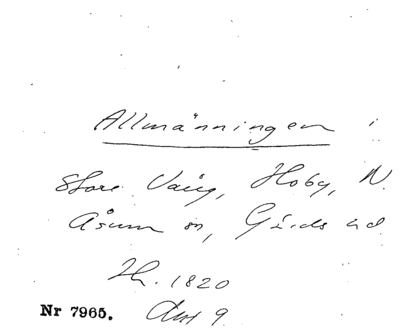 Allmänningen i
Store Vång, Hoby, N.
Åsum sn, Gärds hd
Th. 1820
Nr 7965. Akt 9